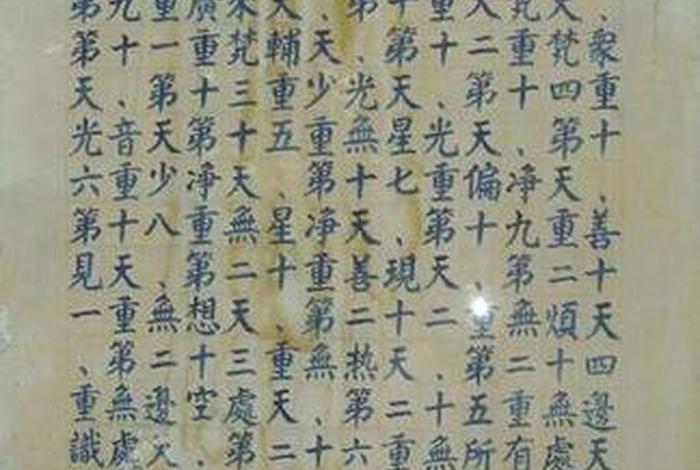 第九重廣果天、第十重大梵天、
第十一重梵輔天、第十二重梵衆
天、第十三重少光天、第十四重
光音天第十五重無星光天、第十
六重少淨天、第十七重偏淨天、
第十八重無星淨天、第十九重善
見天、第二十重善現天、第二十
一重無想天、第二十二重無煩天
、第二十三重無热天、第二十四
重無邊空處天、第二十五重無邊
識處天、第二十六重無所有處天